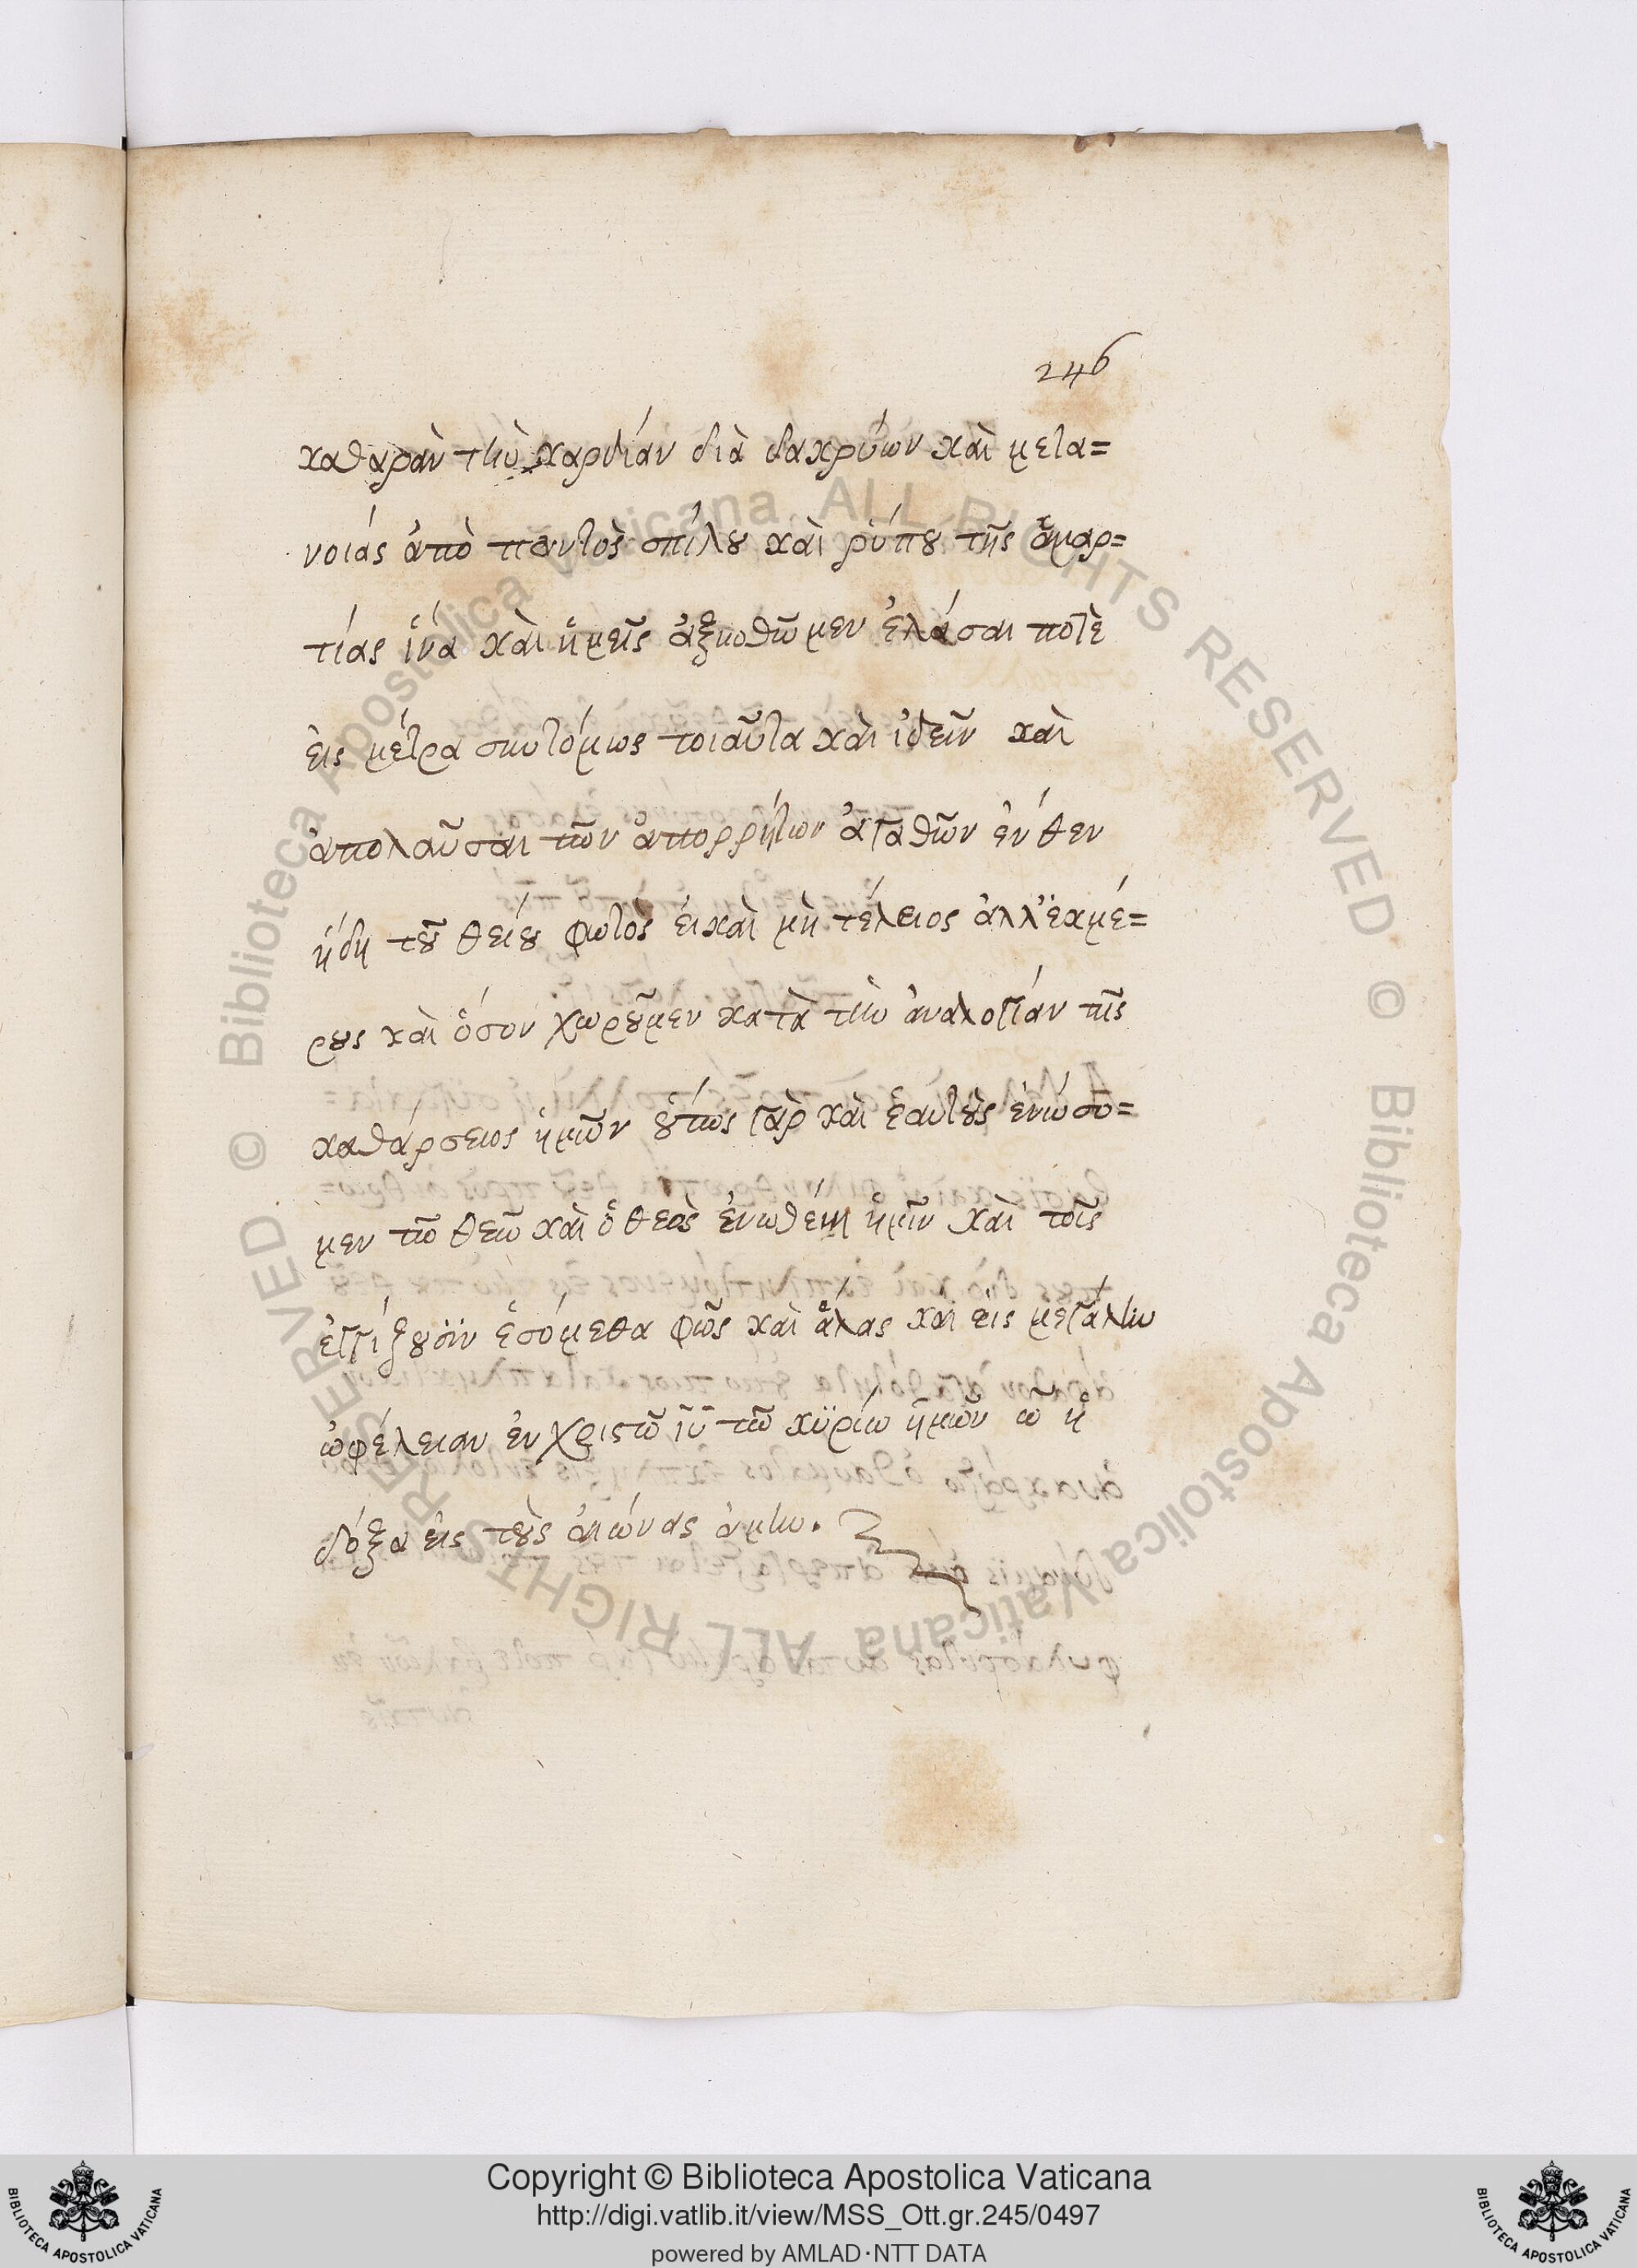 246
καθαρὰν τὴν καρδίαν διὰ δακρύων καὶ μετα=
νοίας ἀπὸ παντὸς σπίλου καὶ ῥύπου τῆς ἁμαρ=
τίας ἵνα καὶ ἡμεῖς ἀξιωθῶμεν ἐλάσαι ποτὲ
εἰς μέτρα συντόμως τοιαῦτα καὶ ἰδεῖν καὶ
ἀπολαῦσαι τῶν ἀπορρήτων ἀγαθῶν ἐνθεν
ἤδη τοῦ θείου φωτὸς εἰ καὶ μὴ τέλειος ἀλλ' ἐκμέ=
ρους καὶ ὅσον χωροῦμεν κατὰ τὴν ἀναλογίαν τῆς
καθάρσεως ἡμῶν οὕτως γὰρ καὶ ἑαυτοὺς ἑνώσο=
μεν τῶ θεῶ καὶ ὁ θεὸς ἑνωθείη ἡμῖν καὶ τοῖς
ἐγγίζουσιν ἐσόμεθα φῶς καὶ ἅλας καὶ εἰς μεγάλην
ὠφέλειαν ἐν χριστῶ ἰῦ τῶ κϋρίω ἡμῶν ὧ ἡ
δόξα εἰς τοὺς αἰώνας ἀμήν.
Copyright © Biblioteca Apostolica Vaticana
http://digi.vatlib.it/view/MSS_Ott.gr.245/0497
powered by AMLAD·NTT DATA
BIBLIOTECA APOSTOLICA VATICANA
BIBLIOTECA APOSTOLICA VATICANA
© Biblioteca Apostolica Vaticana ALL RIGHTS RESERVED
© Biblioteca Apostolica Vaticana ALL RIGHTS RESERVED